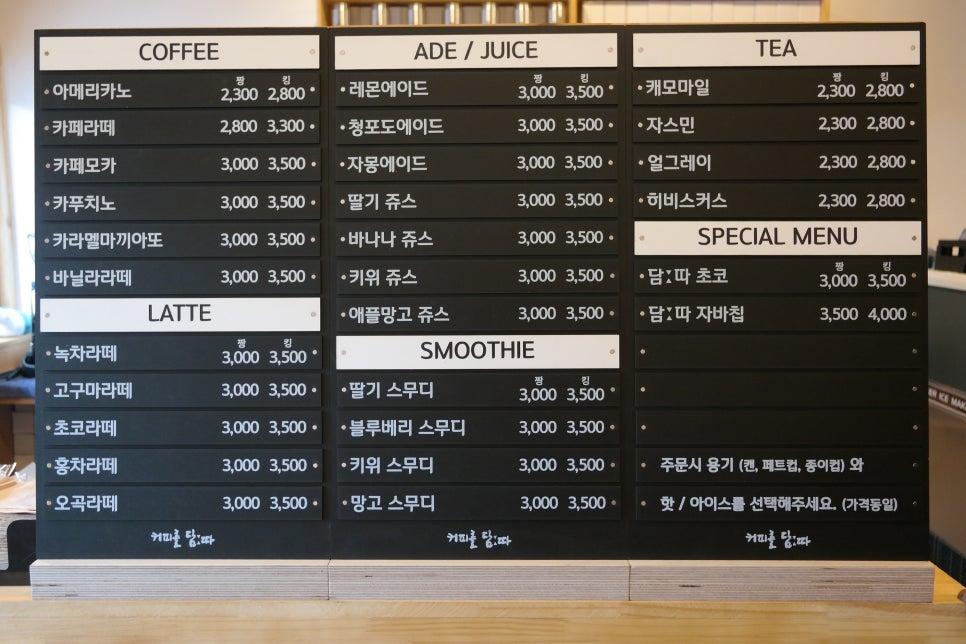 COFFEE
짱 킹
아메리카노 2,300 2,800
카페라떼 2,800 3,300
카페모카 3,000 3,500
카푸치노 3,000 3,500
카라멜마끼아또 3,000 3,500
바닐라라떼 3,000 3,500
LATTE
짱 킹
녹차라떼 3,000 3,500
고구마라떼 3,000 3,500
초코라떼 3,000 3,500
홍차라떼 3,000 3,500
오곡라떼 3,000 3,500
커피를 담:따
ADE / JUICE
짱 킹
레몬에이드 3,000 3,500
청포도에이드 3,000 3,500
자몽에이드 3,000 3,500
딸기 쥬스 3,000 3,500
바나나 쥬스 3,000 3,500
키위 쥬스 3,000 3,500
애플망고 쥬스 3,000 3,500
SMOOTHIE
짱 킹
딸기 스무디 3,000 3,500
블루베리 스무디 3,000 3,500
키위 스무디 3,000 3,500
망고 스무디 3,000 3,500
커피를 담:따
TEA
짱 킹
캐모마일 2,300 2,800
자스민 2,300 2,800
얼그레이 2,300 2,800
히비스커스 2,300 2,800
SPECIAL MENU
짱 킹
담:따 초코 3,000 3,500
담:따 자바칩 3,500 4,000
주문시 용기 (캔, 페트컵, 종이컵) 와
핫 / 아이스를 선택해주세요. (가격동일)
커피를 담:따
ICE